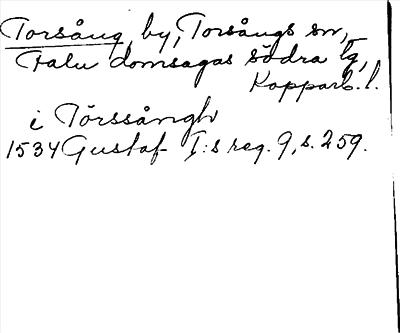 Torsång, by, Torsångs sn,
Falu domsagas södra tg,
Kopparb. l.
i Törssångh
1534 Gustaf I:s reg. 9, s. 259.